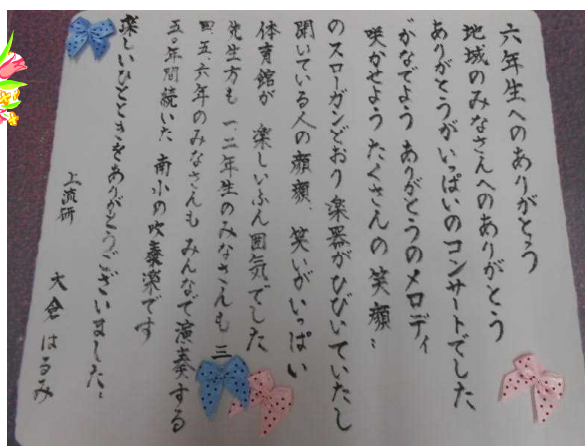 六年生へのありがとう
地域のみなさんへのありがとう
ありがとうがいっぱいのコンサートでした
かなでよう ありがとうのメロディ
咲かせよう たくさんの笑顔…
のスローガンどおり楽器がひびいていたし
聞いている人の顔顔、笑いがいっぱい
体育館が 楽しいふん囲気でした
先生方も 一、二年生のみなさんも 三
四、五、六年のみなさんも みんなで演奏する
五〇年間続いた 南小の吹奏楽です
楽しいひとときをありがとうございました。
上流研 大倉 はるみ